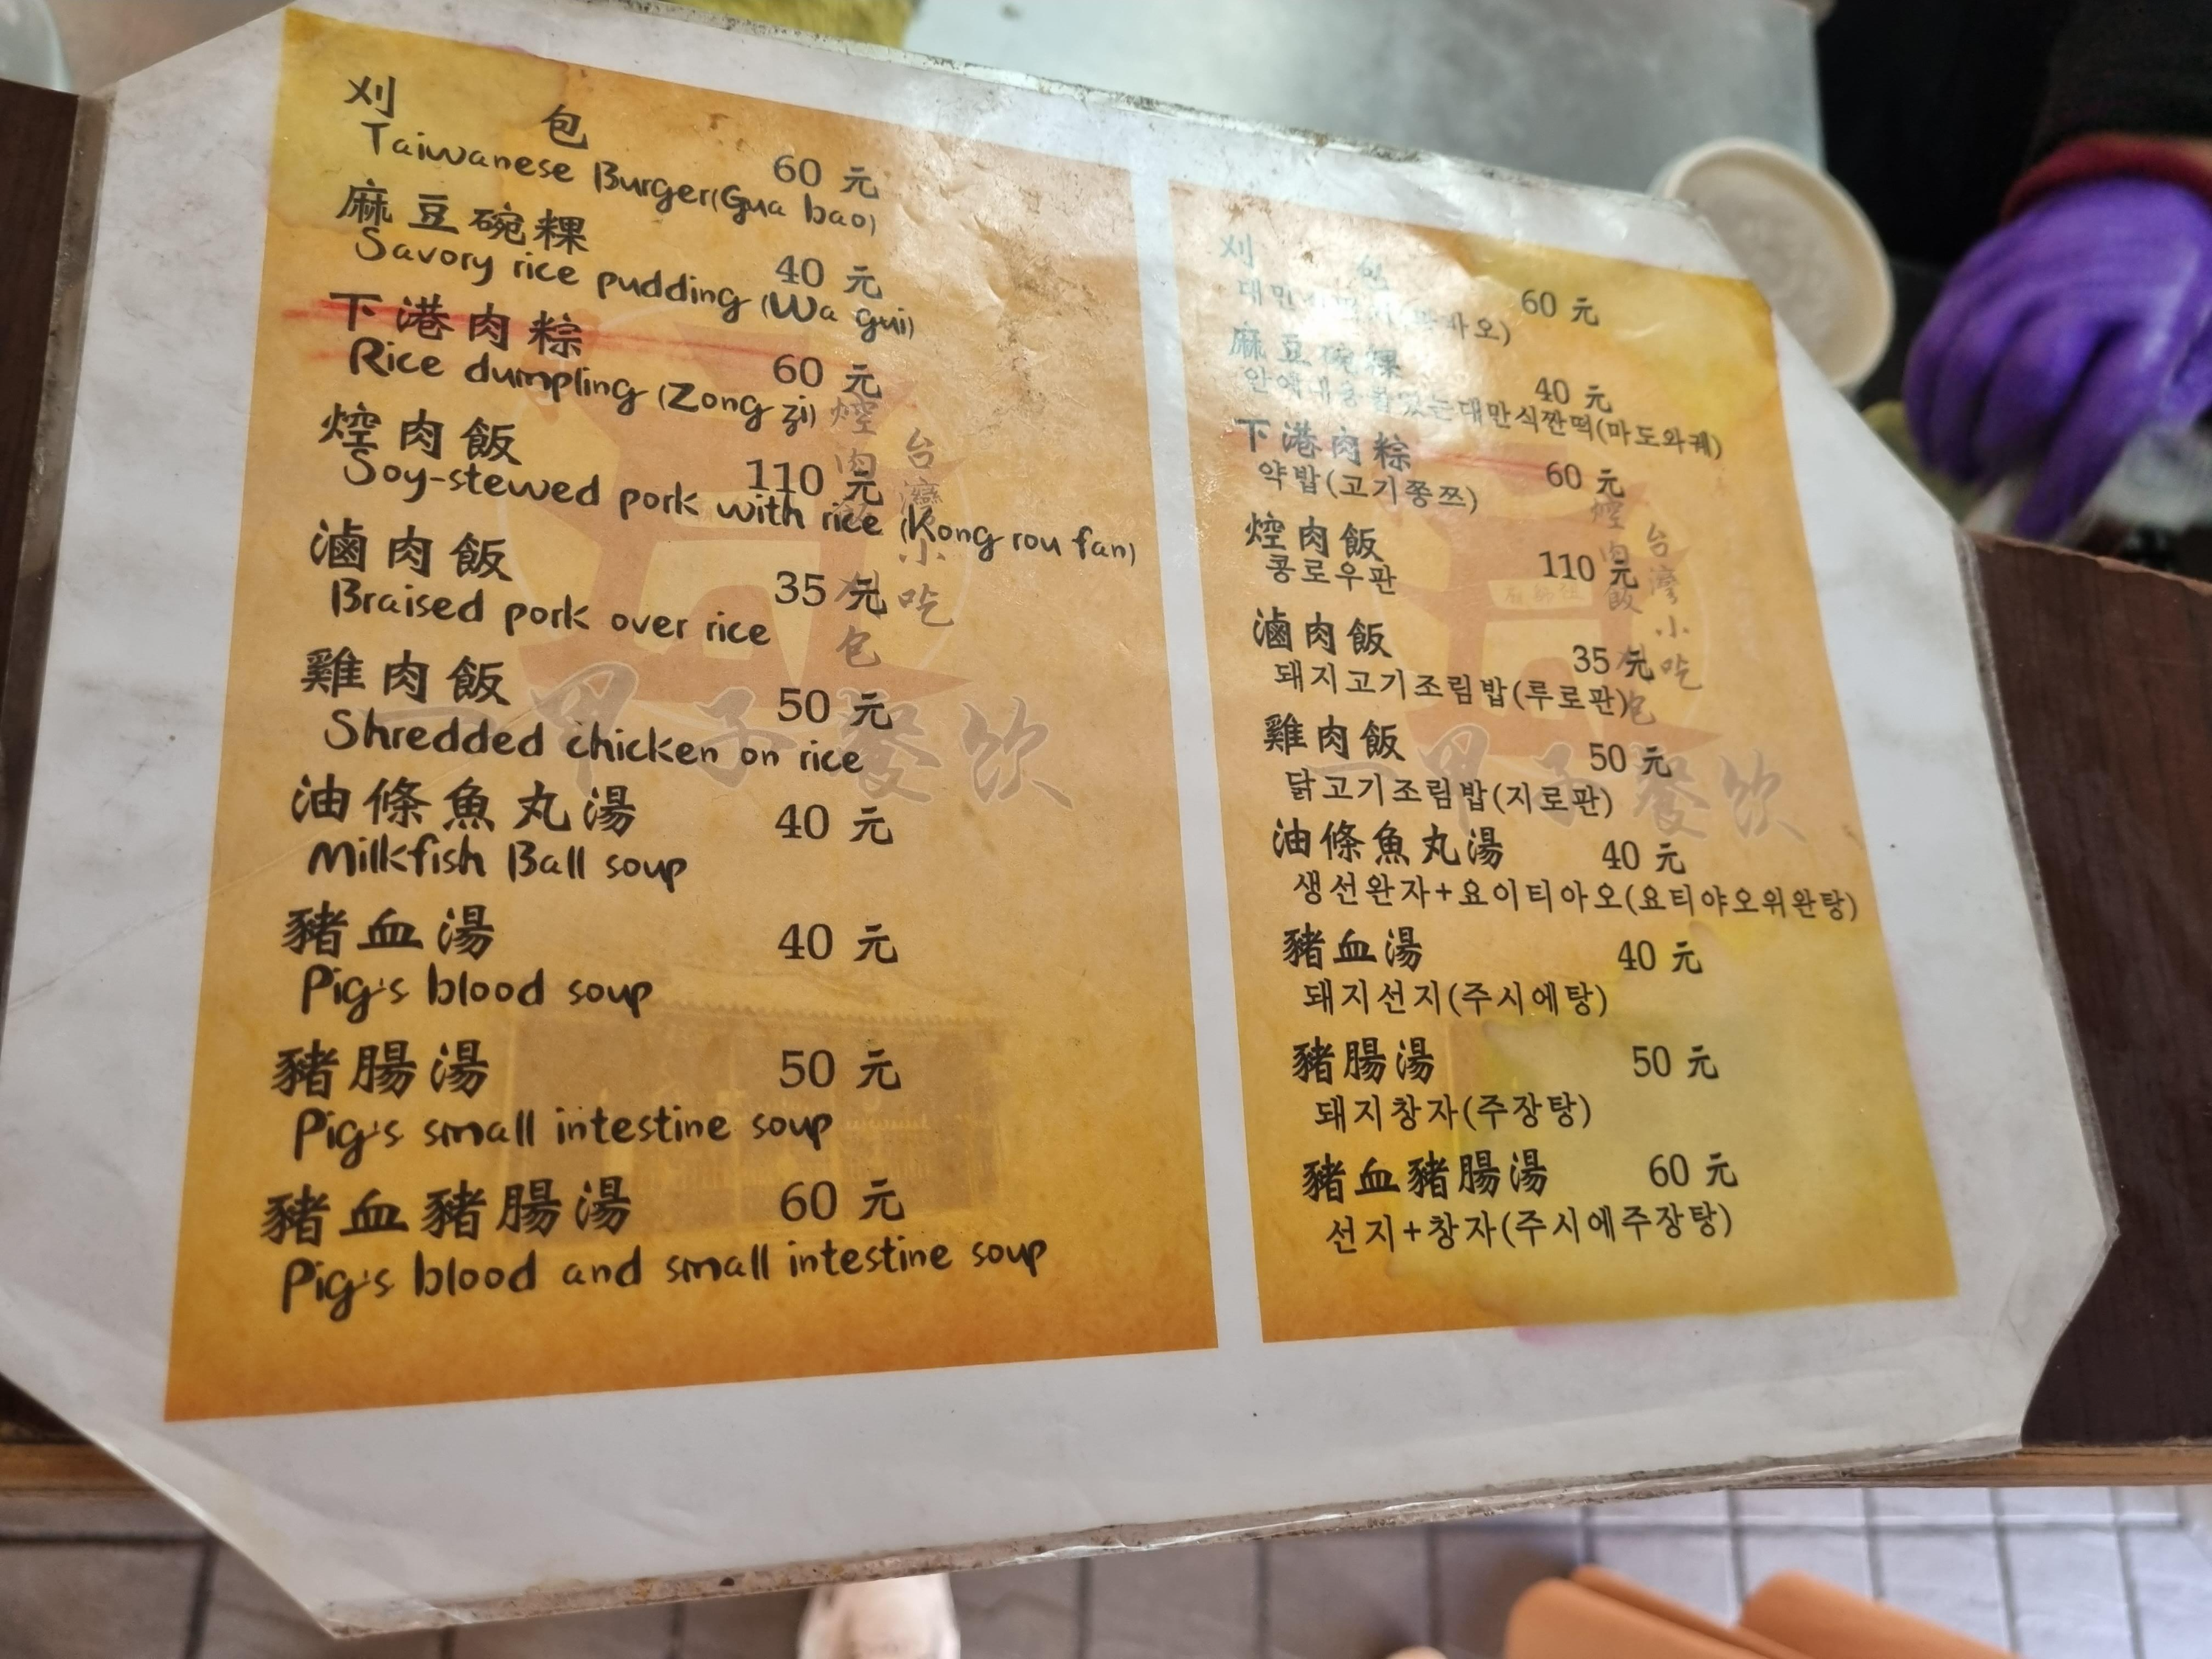 刈 包 60 元
Taiwanese Burger(Gua bao)
麻豆碗粿 40 元
Savory rice pudding (Wa gui)
下港肉粽 60 元
Rice dumpling (Zong zi)
焢肉飯 110 元
Soy-stewed pork with rice (Kong rou fan)
滷肉飯 35 元
Braised pork over rice
雞肉飯 50 元
Shredded chicken on rice
油條魚丸湯 40 元
Milkfish Ball soup
豬血湯 40 元
Pig's blood soup
豬腸湯 50 元
Pig's small intestine soup
豬血豬腸湯 60 元
Pig's blood and small intestine soup
焢肉飯 刈包
台灣小吃
一甲子餐飲
刈 包 60 元
麻豆碗粿 40 元
대만식깐떡(마도와궤)
下港肉粽 60 元
약밥(고기쫑쯔)
焢肉飯 110 元
콩로우판
滷肉飯 35 元
돼지고기조림밥(루로판)
雞肉飯 50 元
닭고기조림밥(지로판)
油條魚丸湯 40 元
생선완자+요이티아오(요티야오위완탕)
豬血湯 40 元
돼지선지(주시에탕)
豬腸湯 50 元
돼지창자(주장탕)
豬血豬腸湯 60 元
선지+창자(주시에주장탕)
焢肉飯 刈包
台灣小吃
一甲子餐飲